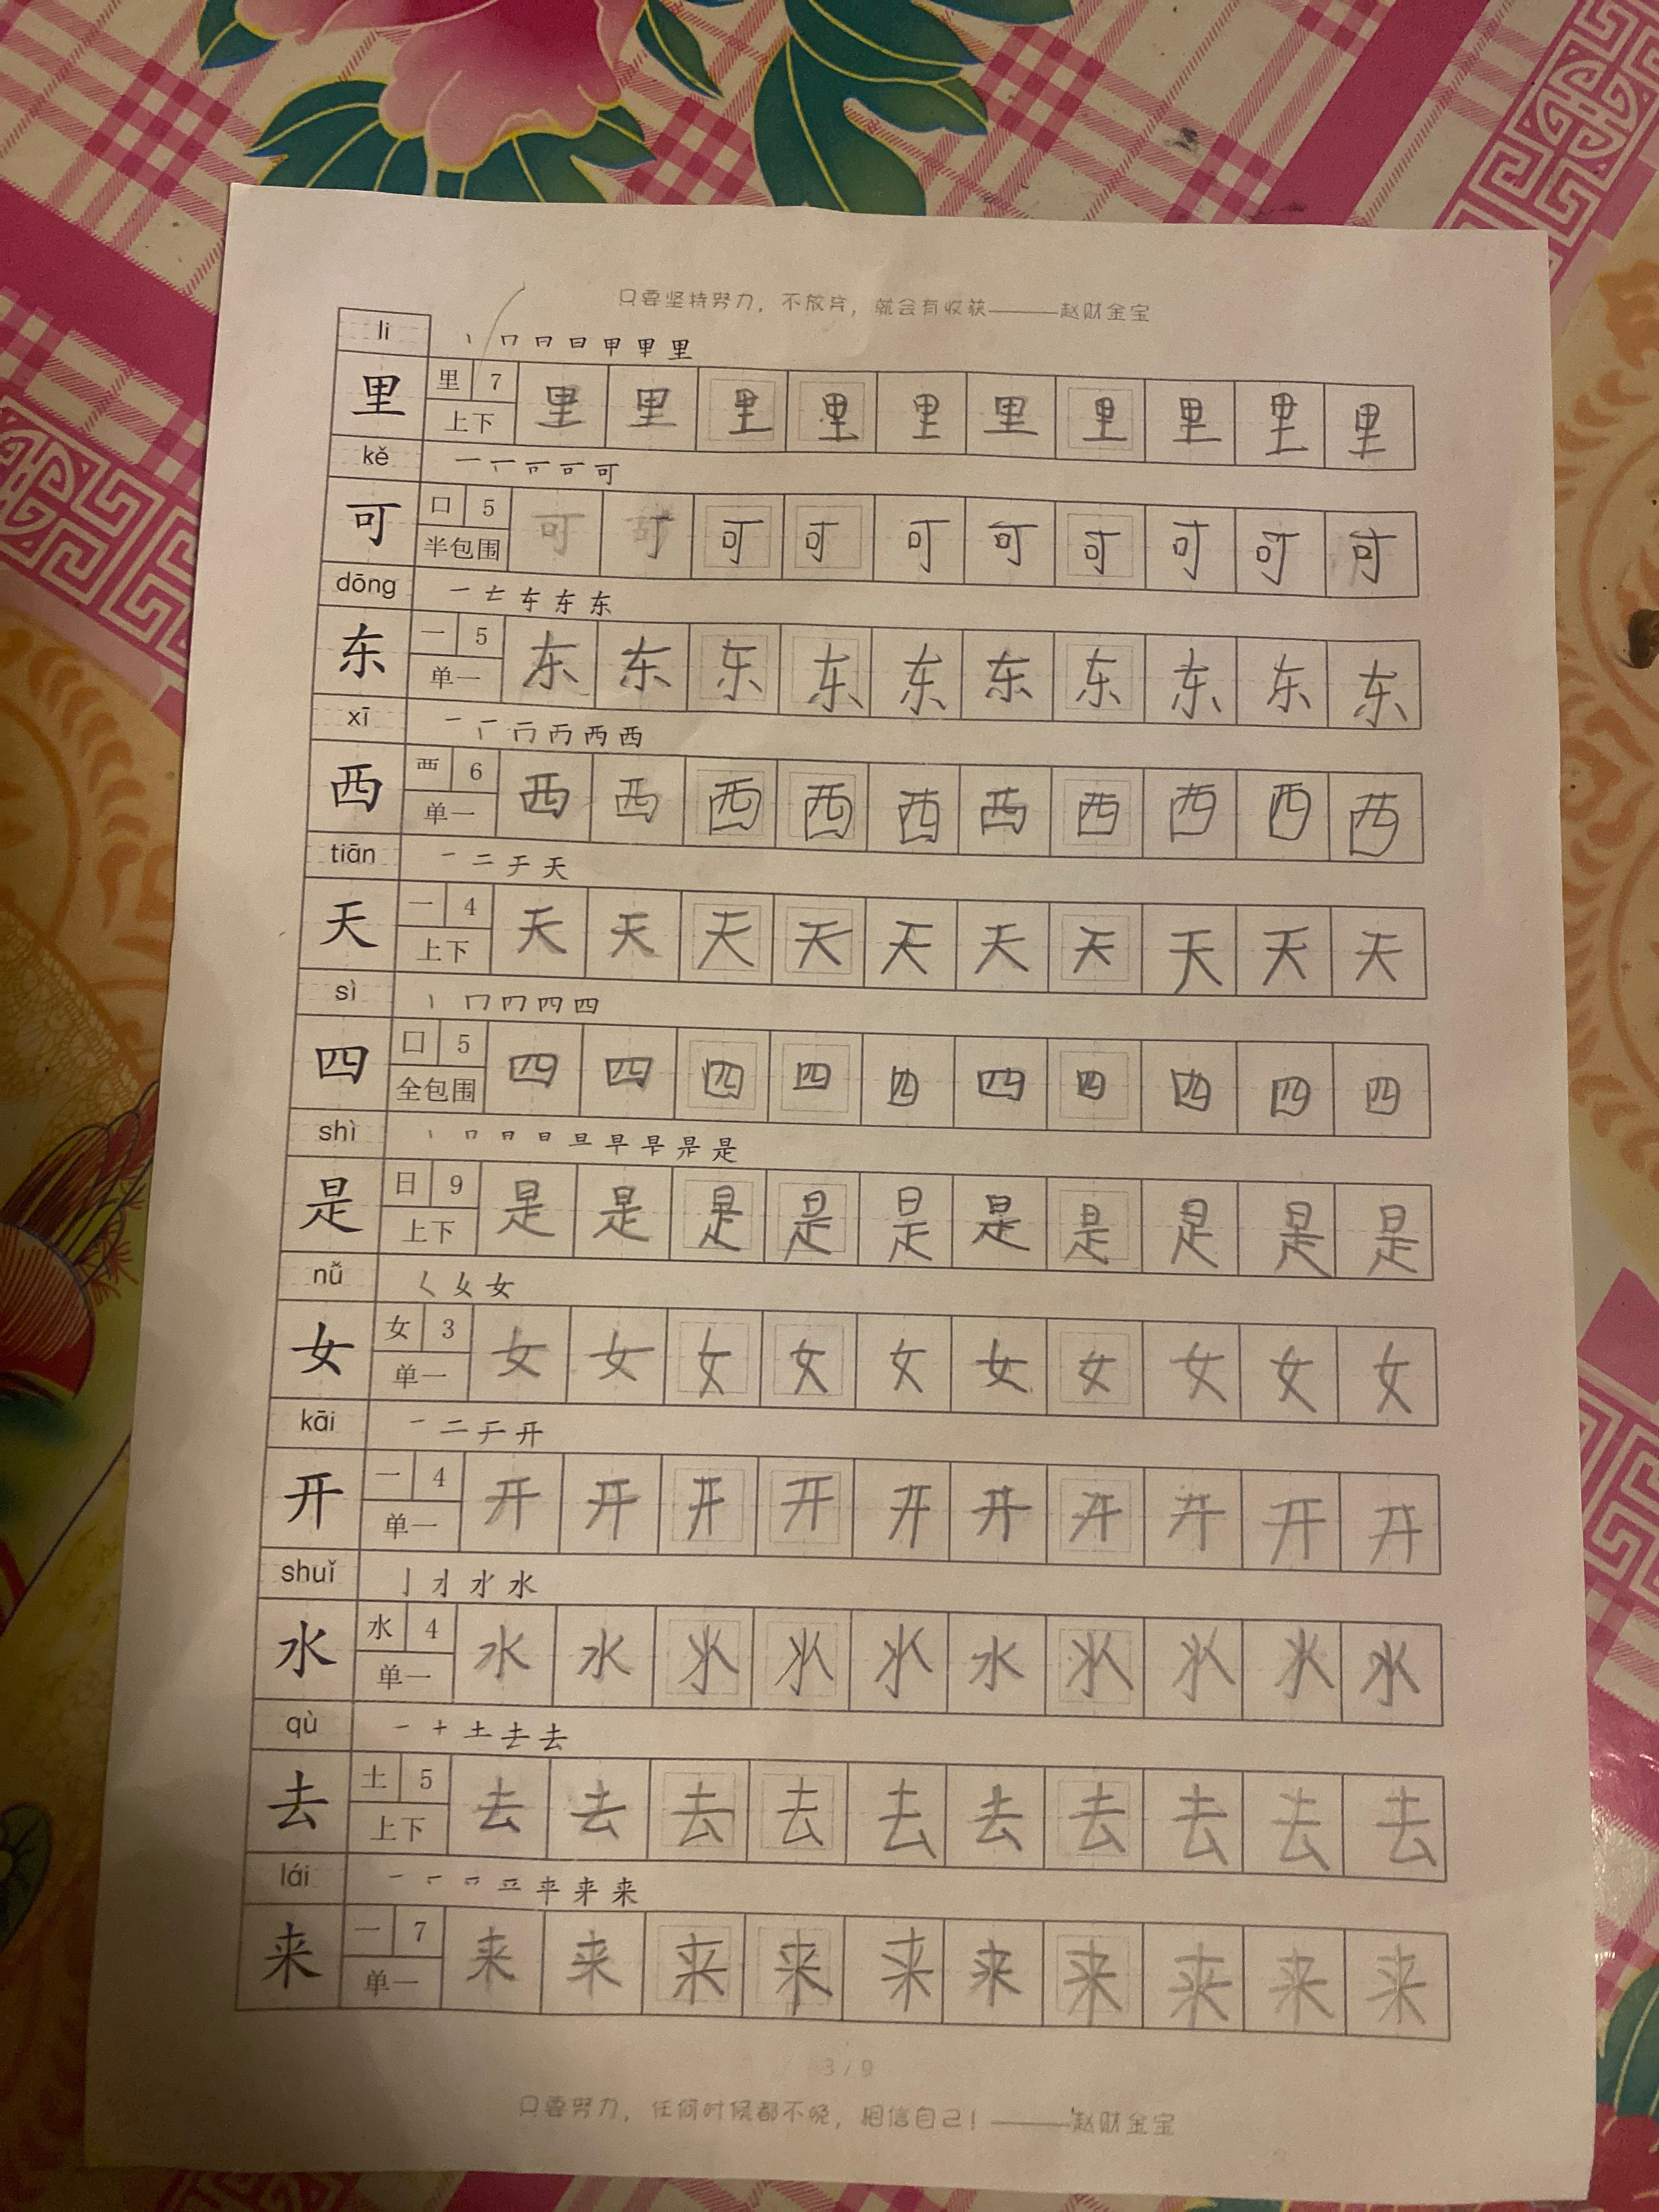 只要坚持努力，不放弃，就会有收获———赵财金宝
li
丶 冂 日 日 甲 甲 里
里 里 7 上下 里 里 里 里 里 里 里 里 里 里
kě
一 可
可 口 5 半包围 可 可 可 可 可 可 可 可 可 可
dōng
一 东
东 一 5 单一 东 东 东 东 东 东 东 东 东 东
xī
一 丙 两 西
西 覀 6 单一 西 西 西 西 西 西 西 西 西 西
tiān
一 二 チ 天
天 一 4 上下 天 天 天 天 天 天 天 天 天 天
sì
丨 冂 四
四 口 5 全包围 四 四 四 四 四 四 四 四 四 四
shì
丨 口 日 日 旦 早 是
是 日 9 上下 是 是 是 是 是 是 是 是 是 是
nǚ
く 女 女
女 女 3 单一 女 女 女 女 女 女 女 女 女 女
kāi
一 二 チ 开
开 一 4 单一 开 开 开 开 开 开 开 开 开 开
shuǐ
亅 水
水 水 4 单一 水 水 水 水 水 水 水 水 水 水
qù
一 十 土 去 去
去 土 5 上下 去 去 去 去 去 去 去 去 去 去
lái
一 来
来 一 7 单一 来 来 来 来 来 来 来 来 来 来
3 / 9
只要努力，任何时候都不晚，相信自己！———赵财金宝